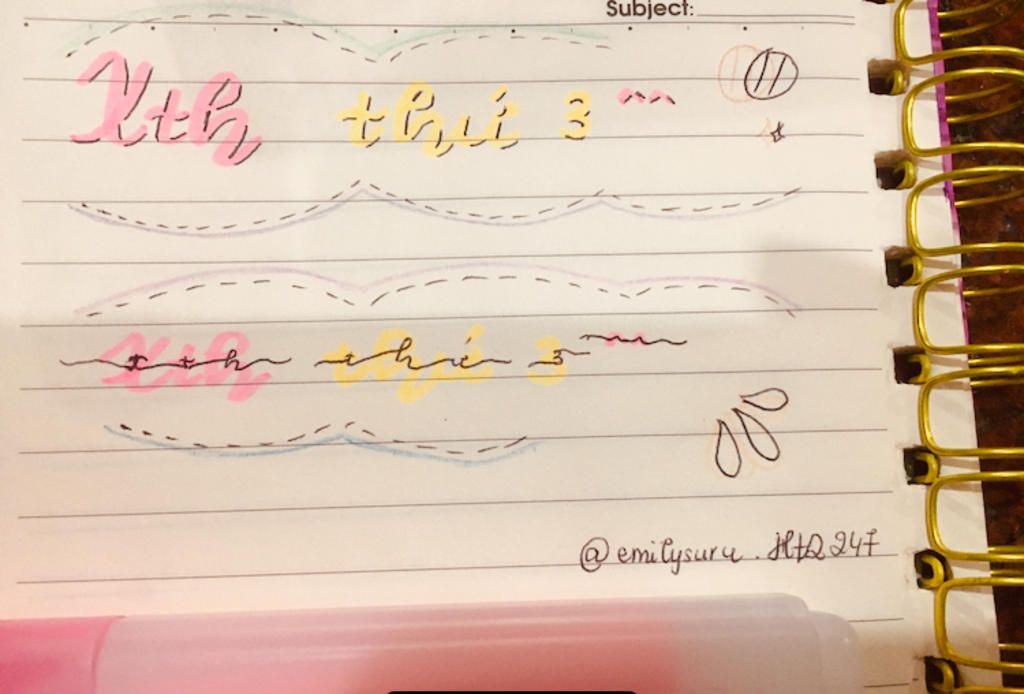 Subject:
Xth thứ 3 ^^
xth thứ 3 ~~
@emilysuru.HtQ247